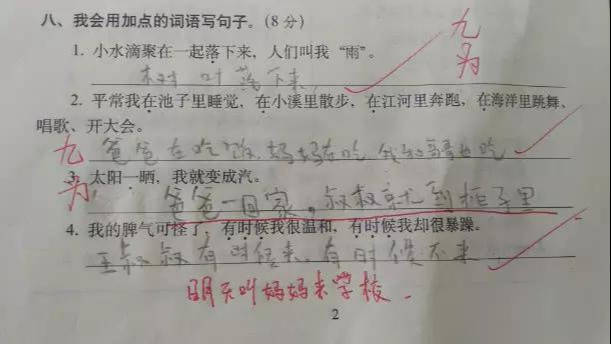 八、我会用加点的词语写句子。(8 分)
1. 小水滴聚在一起落下来，人们叫我“雨”。
树叶落下来
2. 平常我在池子里睡觉，在小溪里散步，在江河里奔跑，在海洋里跳舞、
唱歌、开大会。
爸爸在吃饭，妈妈在吃，我和哥哥也吃
3. 太阳一晒，我就变成汽。
爸爸一回家，叔叔就到柜子里
4. 我的脾气可怪了，有时候我很温和，有时候我却很暴躁。
王叔叔有时候来，有时候不来
明天叫妈妈来学校.
2